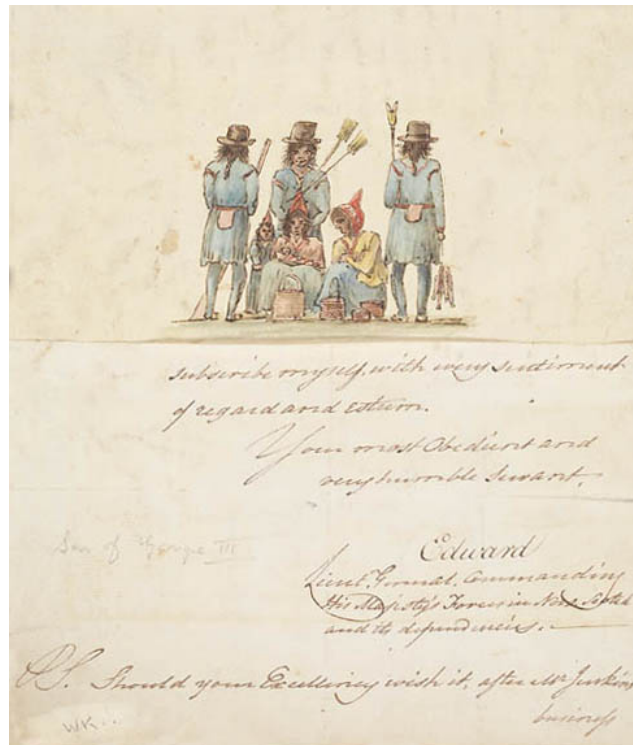 subscribe myself, with every sentiment
of regard and esteem.
Your most Obedient and
very humble Servant.
Son of George III
Edward
Lieut. General. Commanding
His Majesty's Forces in Nova Scotia
and its dependencies.
P.S. Should your Excellency wish it, after Mr Jenkins
business
WK...